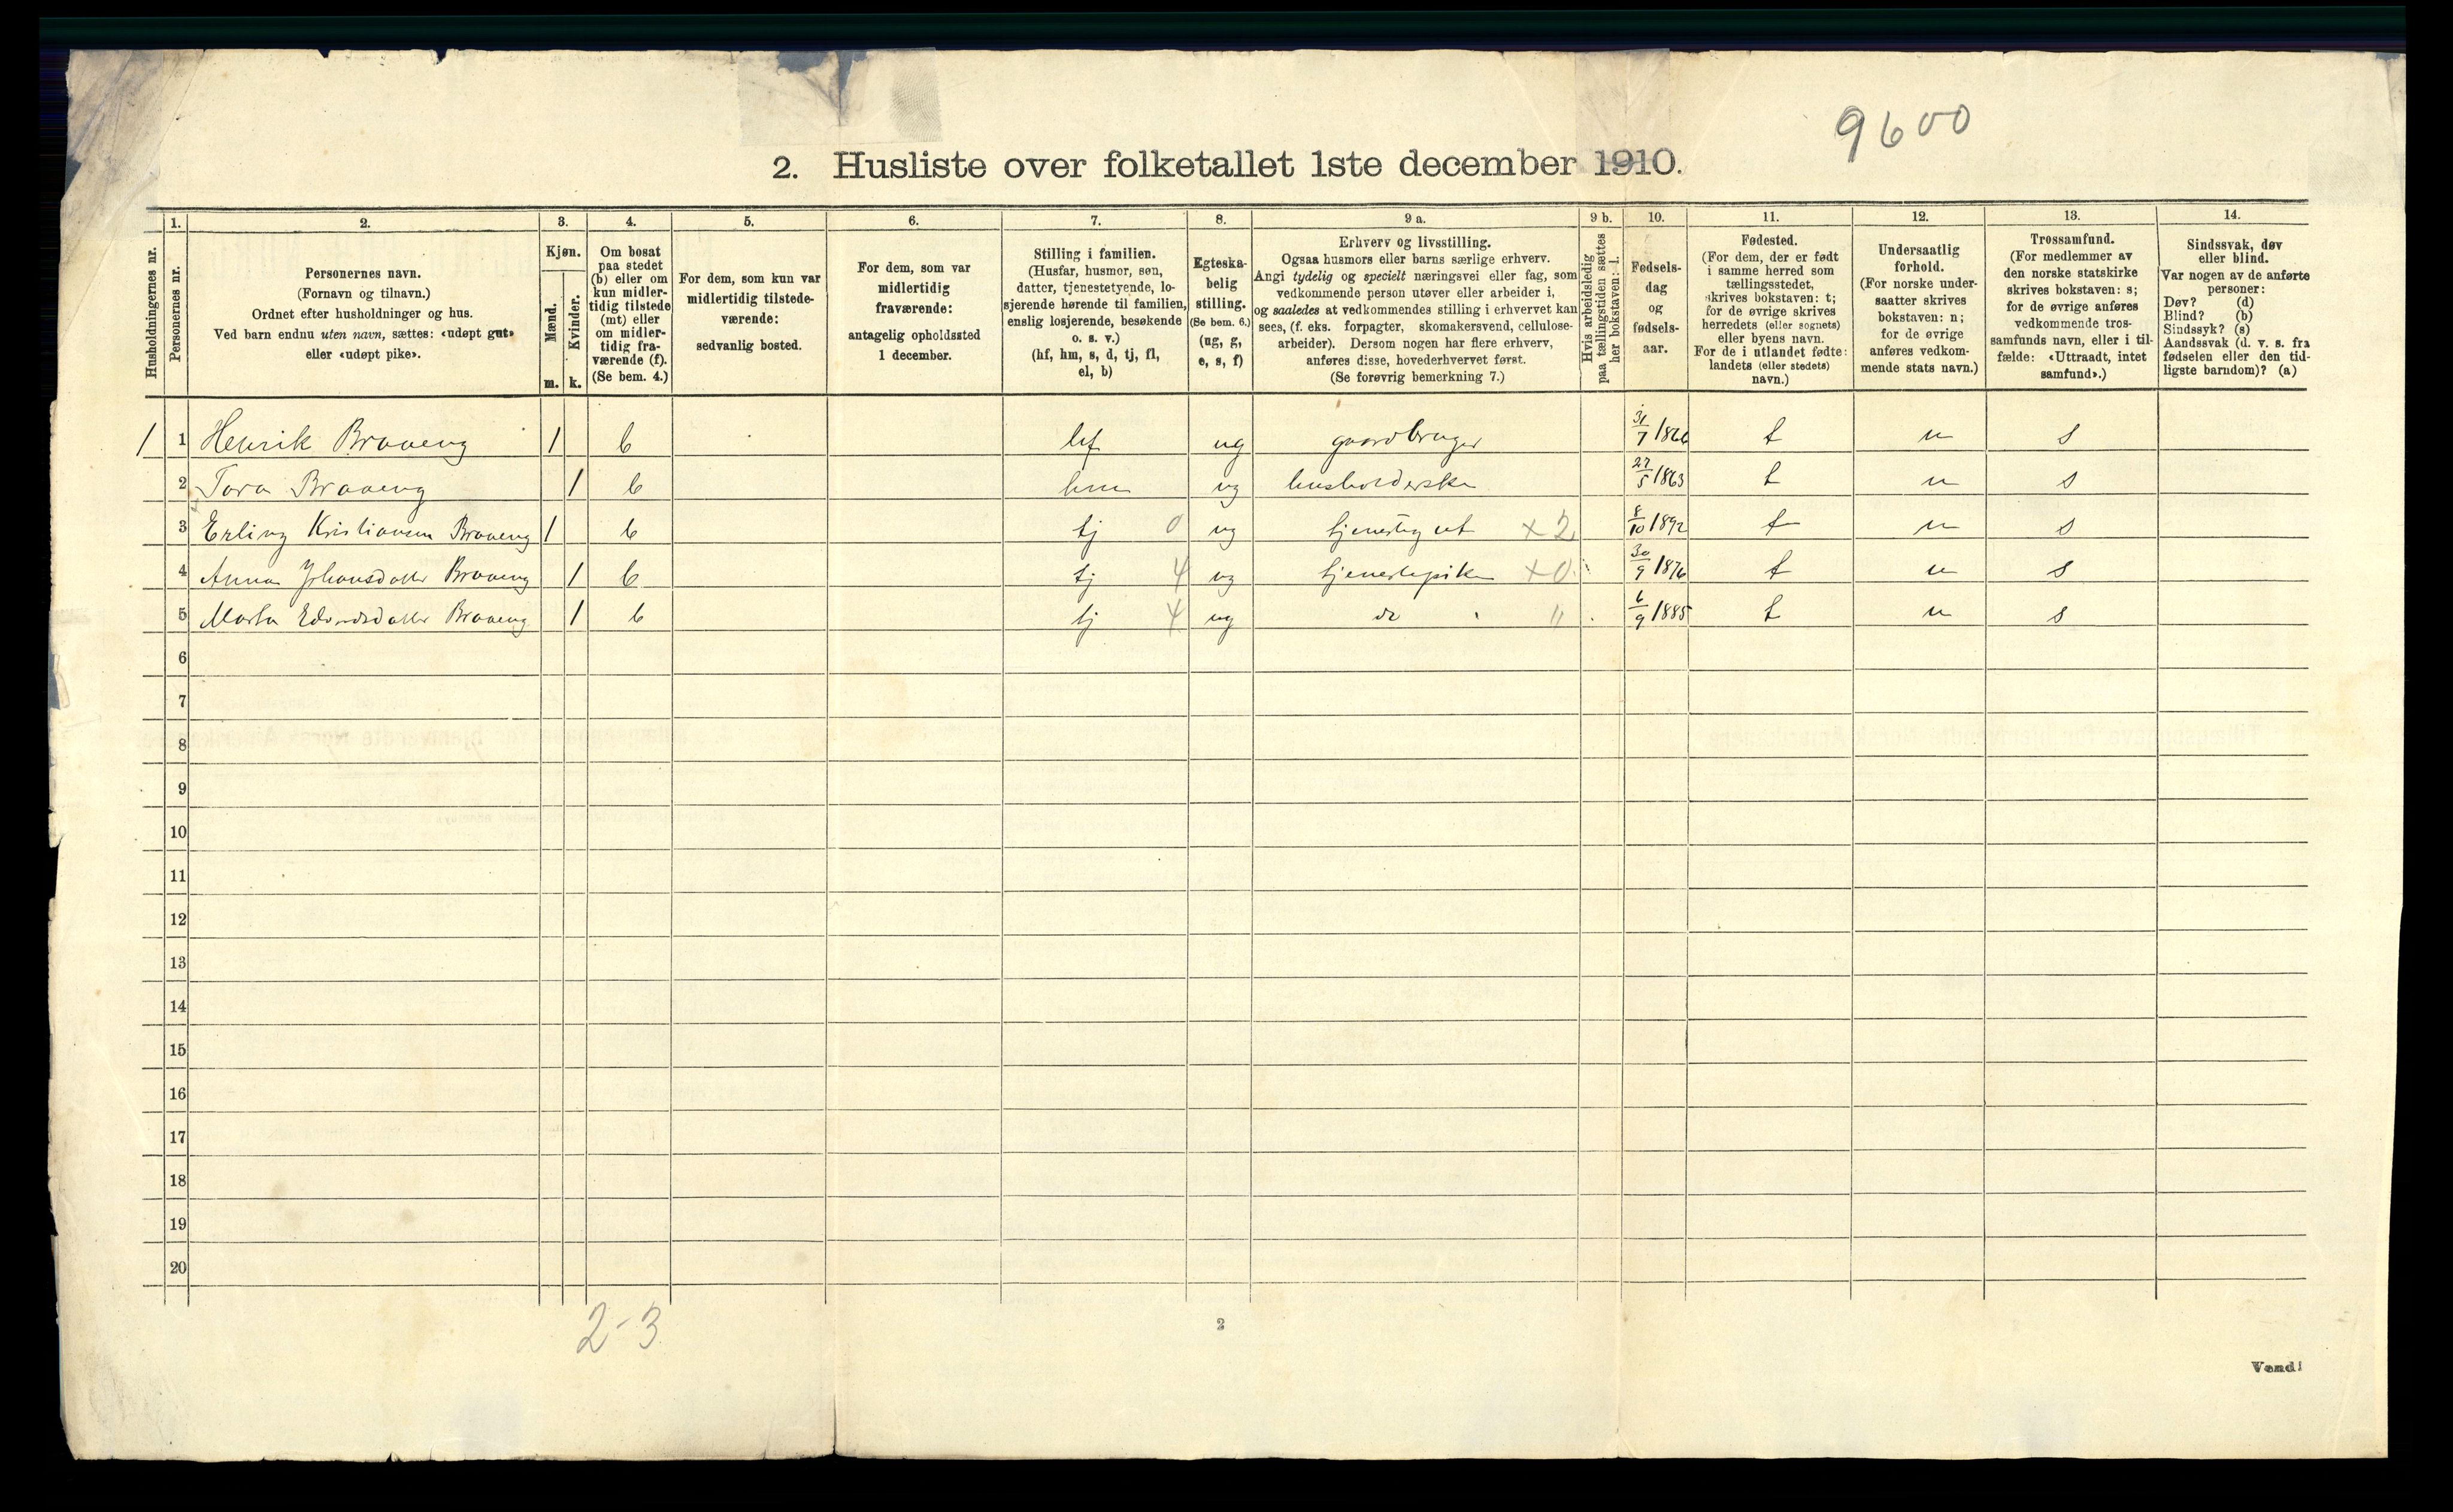 9600
2. Husliste over folketallet 1ste december 1910.
Husholdningernes nr.
1.
Personernes nr.
2.
Personernes navn.
(Fornavn og tilnavn.)
Ordnet efter husholdninger og hus.
Ved barn endnu uten navn, sættes: «udøpt gut»
eller «udøpt pike».
3.
Kjøn.
Mænd.
Kvinder.
m.
k.
4.
Om bosat
paa stedet
(b) eller om
kun midler-
tidig tilstede
(mt) eller
om midler-
tidig fra-
værende (f).
(Se bem. 4.)
5.
For dem, som kun var
midlertidig tilstede-
værende:
sedvanlig bosted.
6.
For dem, som var
midlertidig
fraværende:
antagelig opholdssted
1 december.
7.
Stilling i familien.
(Husfar, husmor, søn,
datter, tjenestetyende, lo-
sjerende hørende til familien,
enslig losjerende, besøkende
o. s. v.)
(hf, hm, s, d, tj, fl,
el, b)
8.
Egteska-
belig
stilling.
(Se bem. 6.)
(ug, g,
e, s, f)
9 a.
Erhverv og livsstilling.
Ogsaa husmors eller barns særlige erhverv.
Angi tydelig og specielt næringsvei eller fag, som
vedkommende person utøver eller arbeider i,
og saaledes at vedkommendes stilling i erhvervet kan
sees, (f. eks. forpagter, skomakersvend, cellulose-
arbeider). Dersom nogen har flere erhverv,
anføres disse, hovederhvervet først.
(Se forøvrig bemerkning 7.)
9 b.
Hvis arbeidsledig
paa tællingstiden sættes
her bokstaven: l.
10.
Fødsels-
dag
og
fødsels-
aar.
11.
Fødested.
(For dem, der er født
i samme herred som
tællingsstedet,
skrives bokstaven: t;
for de øvrige skrives
herredets (eller sognets)
eller byens navn.
For de i utlandet fødte:
landets (eller stedets)
navn.)
12.
Undersaatlig
forhold.
(For norske under-
saatter skrives
bokstaven: n;
for de øvrige
anføres vedkom-
mende stats navn.)
13.
Trossamfund.
(For medlemmer av
den norske statskirke
skrives bokstaven: s;
for de øvrige anføres
vedkommende tros-
samfunds navn, eller i til-
fælde: «Uttraadt, intet
samfund».)
14.
Sindssvak, døv
eller blind.
Var nogen av de anførte
personer:
Døv? (d)
Blind? (b)
Sindssyk? (s)
Aandssvak (d. v. s. fra
fødselen eller den tid-
ligste barndom)? (a)
1 1 Henrik Braaeng 1 b hf ug gaardbruger 31/7 1866 t n s
2 Tora Braaeng 1 b hm ug husholderske 27/5 1863 t n s
3 Erling Kristiansen Braaeng 1 b tj 0 ug tjenestegut x 2 8/10 1892 t n s
4 Anna Johansdatter Braaeng 1 b tj 4 ug tjenestepike x 0 30/9 1876 t n s
5 Marta Edvardsdatter Braaeng 1 b tj 4 ug do " 6/9 1885 t n s
6
7
8
9
10
11
12
13
14
15
16
17
18
19
20
2-3
2
Vend!